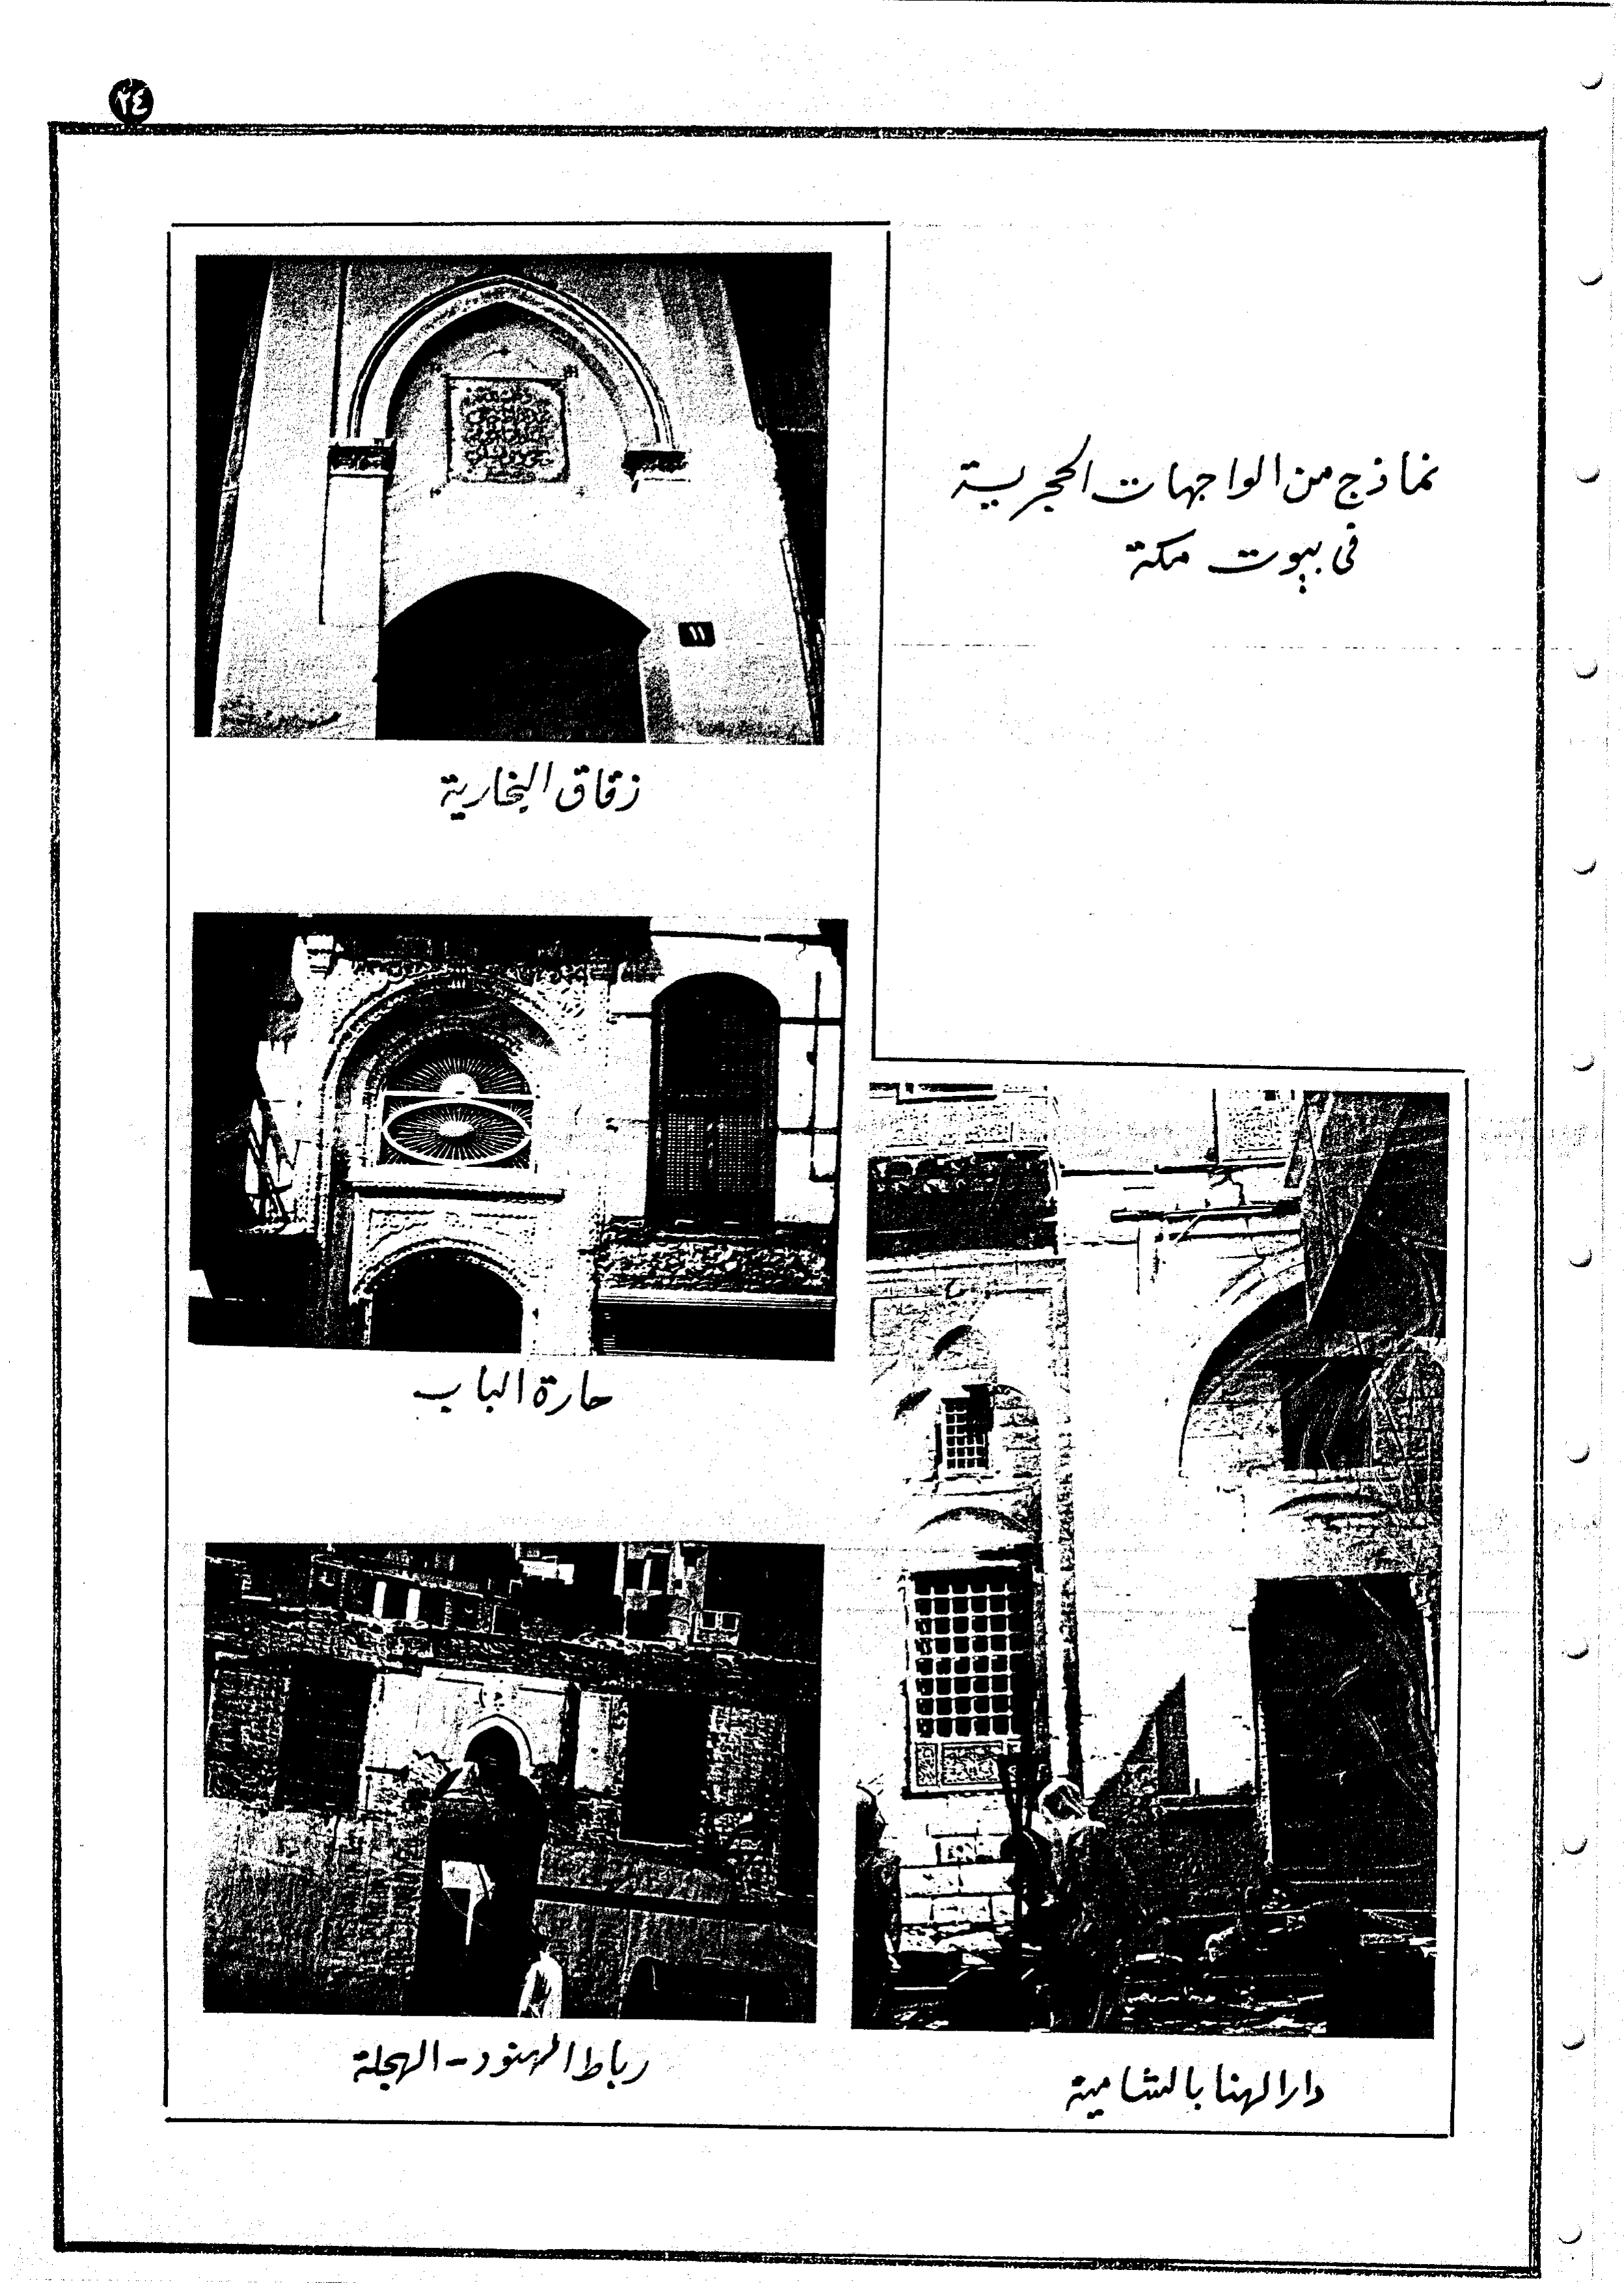 ٢٤
نماذج من الواجهات الحجرية
فى بيوت مكة
١١
زقاق البخارية
حارة الباب
رباط الهنود - الهجلة
دار الهنا بالشامية